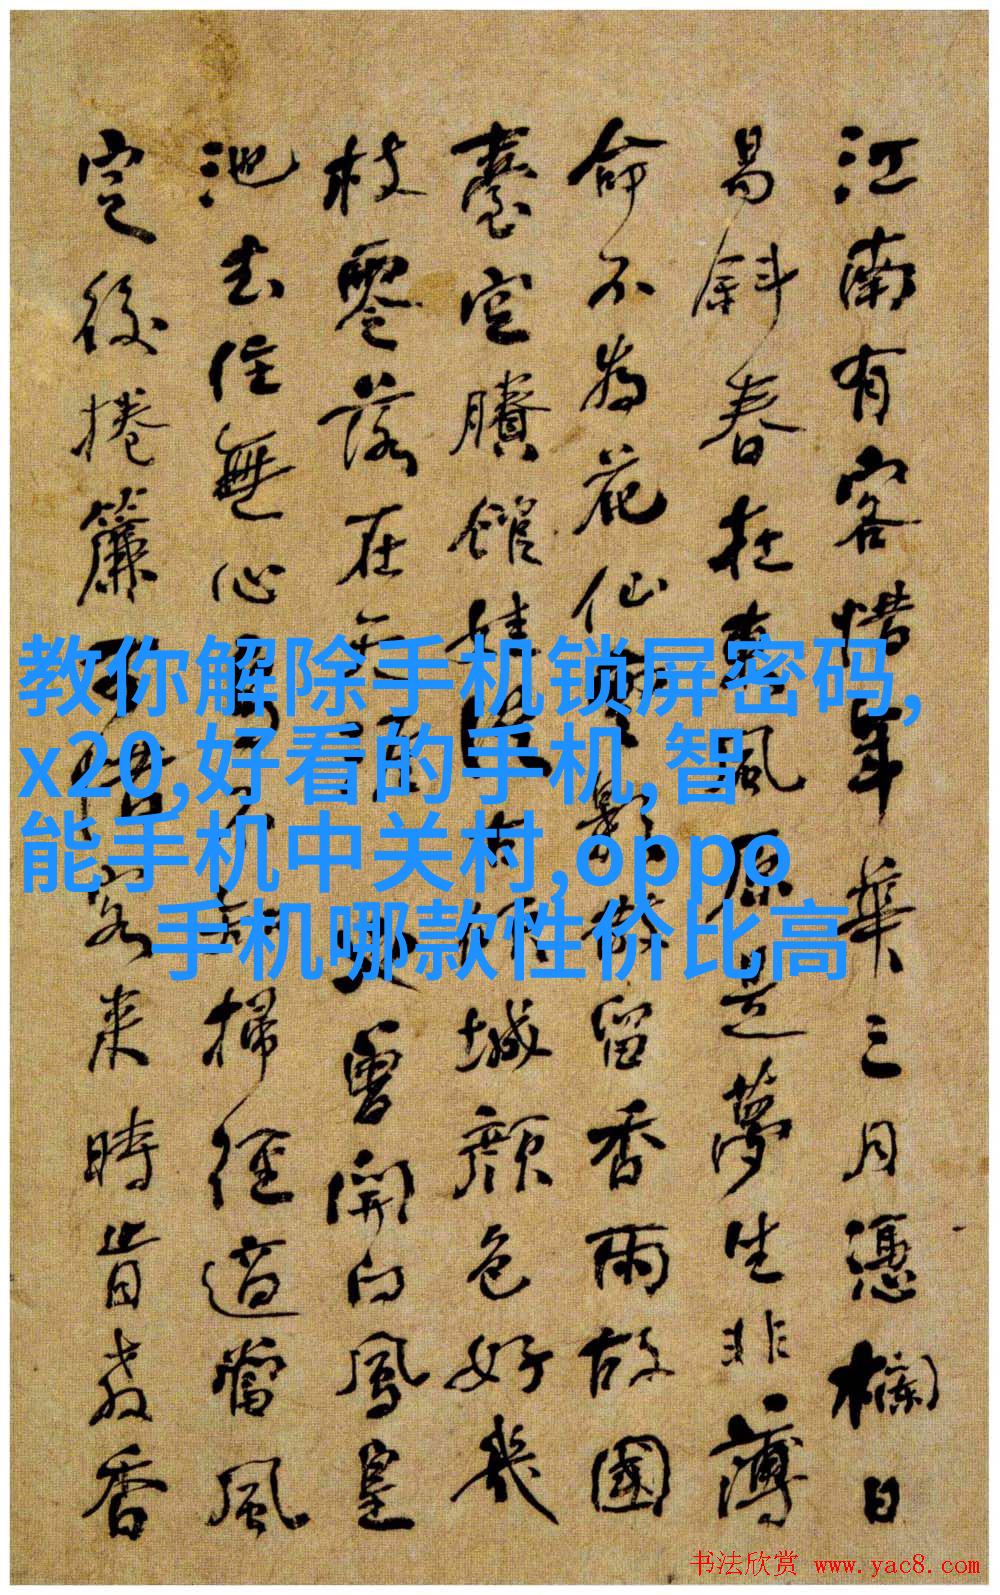 江南有客惜年華三月憑欄日
易斜春在東風原是夢生非薄
命不為花仙影葬留香雨故國
臺空賸館娃古城顏色好幾
枝零落在無曾開向鳳皇
池去住無心掃徑適當風
定後捲簾惜客來時肯教香
教你解除手机锁屏密码,
x20,好看的手机,智
能手机中关村,oppo
手机哪款性价比高
书法欣赏 www.yac8.com